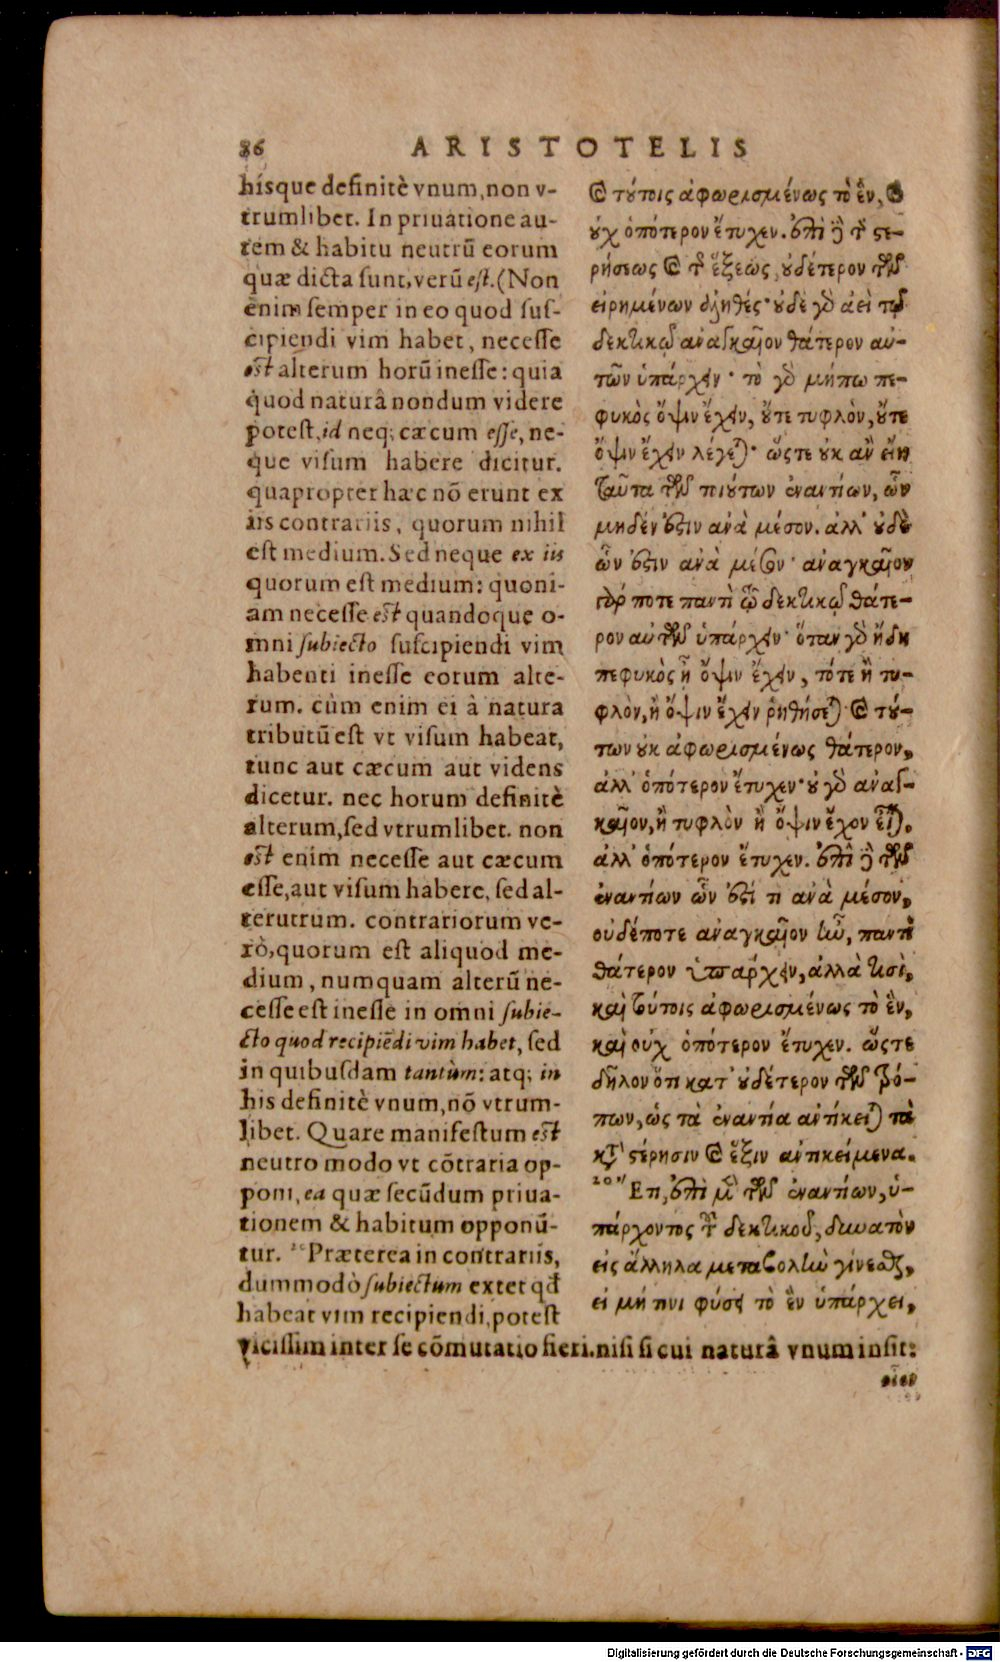 86 ARISTOTELIS
hisque definitè vnum, non v-
trumlibet. In priuatione au-
tem & habitu neutrū eorum
quæ dicta sunt, verū est. (Non
enim semper in eo quod sus-
cipiendi vim habet, necesse
est alterum horū inesse: quia
quod naturâ nondum videre
potest, id neq; cæcum esse, ne-
que visum habere dicitur.
quapropter hæc nō erunt ex
iis contrariis, quorum nihil
est medium. Sed neque ex iis
quorum est medium: quoni-
am necesse est quandoque o-
mni subiecto suscipiendi vim
habenti inesse eorum alte-
rum. cùm enim ei à natura
tributū est vt visum habeat,
tunc aut cæcum aut videns
dicetur. nec horum definitè
alterum, sed vtrumlibet. non
est enim necesse aut cæcum
esse, aut visum habere, sed al-
terutrum. contrariorum ve-
rò, quorum est aliquod me-
dium, numquam alterū ne-
cesse est inesse in omni subie-
cto quod recipiēdi vim habet, sed
in quibusdam tantùm: atq; in
his definitè vnum, nō vtrum-
libet. Quare manifestum est
neutro modo vt cōtraria op-
poni, ea quæ secūdum priua-
tionem & habitum opponū-
tur. Præterea in contrariis,
dummodò subiectum extet qđ
habeat vim recipiendi, potest
vicissim inter se cōmutatio fieri. nisi si cui naturâ vnum insit:
καὶ τούτοις ἀφωρισμένως τὸ ἓν, καὶ
οὐχ ὁπότερον ἔτυχεν. ἐπὶ δὲ τῆς στε-
ρήσεως καὶ τῆς ἕξεως, οὐδέτερον τῶν
εἰρημένων ἀληθές· οὐδὲ γὰρ ἀεὶ τῷ
δεκτικῷ ἀναγκαῖον θάτερον αὐ-
τῶν ὑπάρχειν· τὸ γὰρ μήπω πε-
φυκὸς ὄψιν ἔχειν, οὔτε τυφλὸν, οὔτε
ὄψιν ἔχειν λέγεται· ὥστε οὐκ ἂν εἴη
ταῦτα τῶν τοιούτων ἐναντίων, ὧν
μηδέν ἐστιν ἀνὰ μέσον. ἀλλ' οὐδὲ
ὧν ἐστιν ἀνὰ μέσον· ἀναγκαῖον
γάρ ποτε παντὶ τῷ δεκτικῷ θάτε-
ρον αὐτῶν ὑπάρχειν· ὅταν γὰρ ἤδη
πεφυκὸς ᾖ ὄψιν ἔχειν, τότε ἢ τυ-
φλὸν, ἢ ὄψιν ἔχειν ῥηθήσεται· καὶ τού-
των οὐκ ἀφωρισμένως θάτερον,
ἀλλ' ὁπότερον ἔτυχεν· οὐ γὰρ ἀναγ-
καῖον, ἢ τυφλὸν ἢ ὄψιν ἔχον εἶναι.
ἀλλ' ὁπότερον ἔτυχεν. ἐπὶ δὲ τῶν
ἐναντίων ὧν ἐστί τι ἀνὰ μέσον,
οὐδέποτε ἀναγκαῖον ἦν, παντὶ
θάτερον ὑπάρχειν, ἀλλὰ τισὶ,
καὶ τούτοις ἀφωρισμένως τὸ ἓν,
καὶ οὐχ ὁπότερον ἔτυχεν. ὥστε
δῆλον ὅτι κατ' οὐδέτερον τῶν τρό-
πων, ὡς τὰ ἐναντία ἀντίκειται τὰ
κατὰ στέρησιν καὶ ἕξιν ἀντικείμενα.
20 Ἔτι, ἐπὶ μὲν τῶν ἐναντίων, ὑ-
πάρχοντος τοῦ δεκτικοῦ, δυνατὸν
εἰς ἄλληλα μεταβολὴν γίνεσθαι,
εἰ μή τινι φύσει τὸ ἓν ὑπάρχει,
οἷον
Digitalisierung gefördert durch die Deutsche Forschungsgemeinschaft - DFG